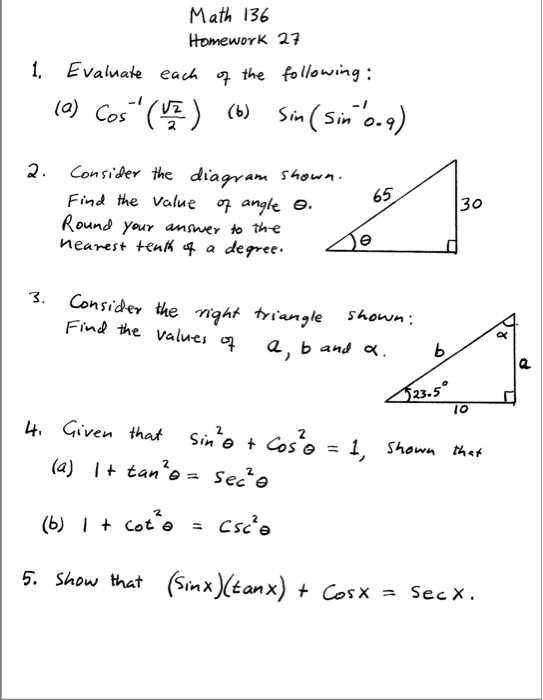 Math 136
Homework 27
1. Evaluate each of the following:
(a) Cos⁻¹(√2/2) (b) Sin(Sin⁻¹0.9)
2. Consider the diagram shown.
Find the value of angle θ.
Round your answer to the
nearest tenth of a degree.
65
30
θ
3. Consider the right triangle shown:
Find the values of a, b and α.
b
α
a
23.5°
10
4. Given that Sin²θ + Cos²θ = 1, Shown that
(a) 1 + tan²θ = Sec²θ
(b) 1 + Cot²θ = Csc²θ
5. Show that (Sinx)(tanx) + Cosx = Secx.